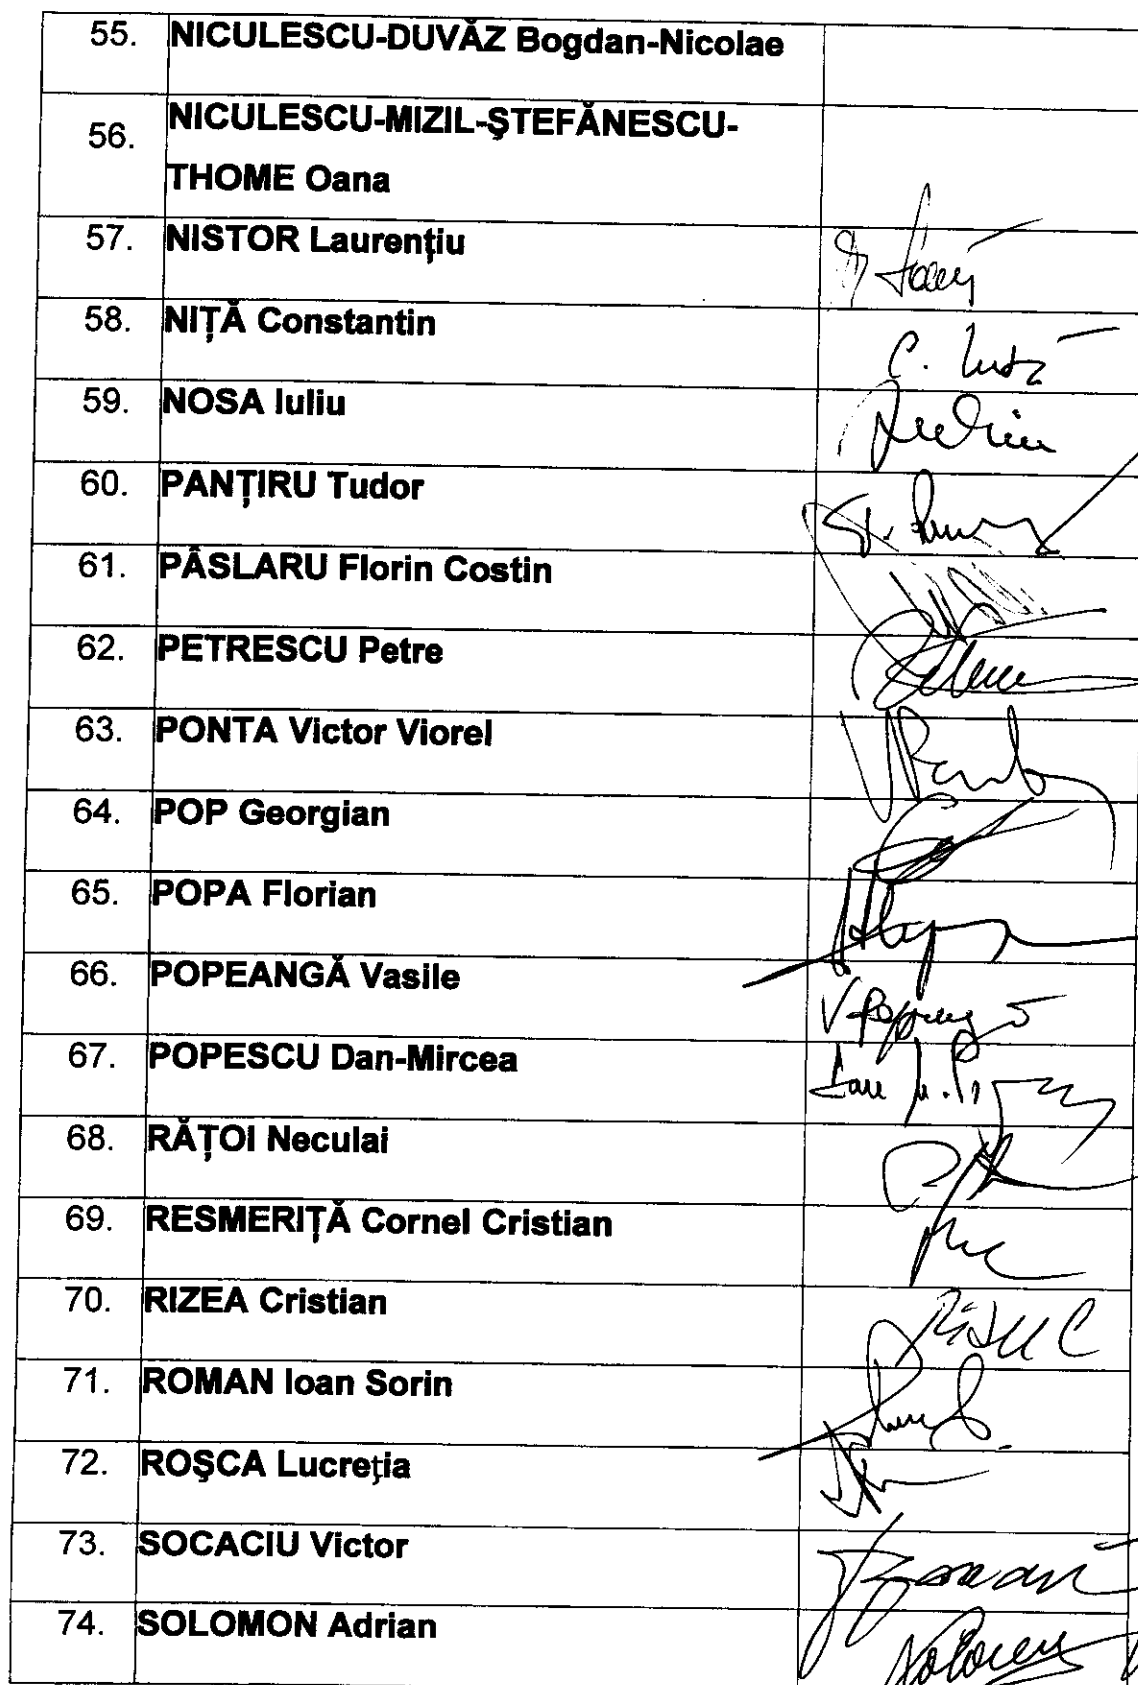 55. NICULESCU-DUVĂZ Bogdan-Nicolae
56. NICULESCU-MIZIL-ŞTEFĂNESCU-
THOME Oana
57. NISTOR Laurenţiu
58. NIŢĂ Constantin
C. Niță
59. NOSA Iuliu
60. PANŢIRU Tudor
61. PÂSLARU Florin Costin
62. PETRESCU Petre
63. PONTA Victor Viorel
VPonta
64. POP Georgian
65. POPA Florian
66. POPEANGĂ Vasile
67. POPESCU Dan-Mircea
68. RĂŢOI Neculai
69. RESMERIŢĂ Cornel Cristian
70. RIZEA Cristian
71. ROMAN Ioan Sorin
72. ROŞCA Lucreţia
73. SOCACIU Victor
74. SOLOMON Adrian